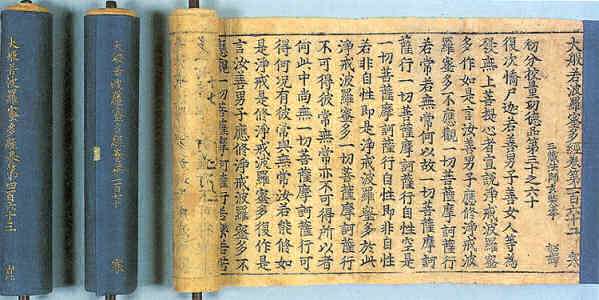 大般若波羅蜜多經卷第一百六十二 寒
三藏法師玄奘奉 詔譯
初分校量功德品第三十之六十
復次憍尸迦若善男子善女人等為
發無上菩提心者宣說淨戒波羅蜜
多作如是言汝善男子應修淨戒波
羅蜜多不應觀一切菩薩摩訶薩行
若常若無常何以故一切菩薩摩訶
薩行一切菩薩摩訶薩行自性空是
一切菩薩摩訶薩行自性即非自性
若非自性即是淨戒波羅蜜多於此
淨戒波羅蜜多一切菩薩摩訶薩行
不可得彼常無常亦不可得所以者
何此中尚無一切菩薩摩訶薩行可
得何況有彼常與無常汝若能修如
是淨戒是修淨戒波羅蜜多復作是
言汝善男子應修淨戒波羅蜜多不
應觀一切菩薩摩訶薩行若樂若苦
大般若波羅蜜多經卷第一百六十 寒
大般若波羅蜜多經卷第四百六十三